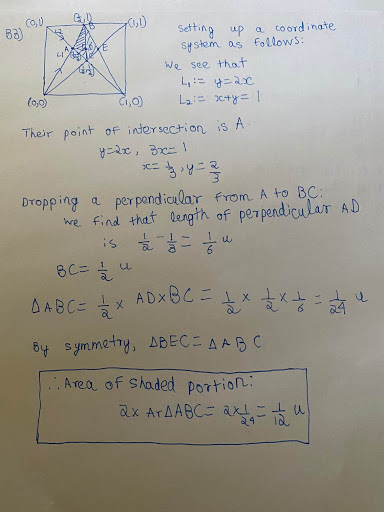 B3)
(0,1)
(½,1)
(1,1)
B
A
E
C
L2
L1
(½,½)
(0,0)
(1,0)
Setting up a coordinate
system as follows:
We see that
L₁:= y=2x
L₂:= x+y= 1
Their point of intersection is A.
y=2x, 3x=1
x= 1/3, y= 2/3
Dropping a perpendicular from A to BC:
We find that length of perpendicular AD
is 1/2 - 1/3 = 1/6 u
BC= 1/2 u
ΔABC= 1/2 x AD x BC = 1/2 x 1/2 x 1/6 = 1/24 u
By symmetry, ΔBEC= ΔABC
∴ Area of shaded portion:
2x ArΔABC= 2x 1/24 = 1/12 u